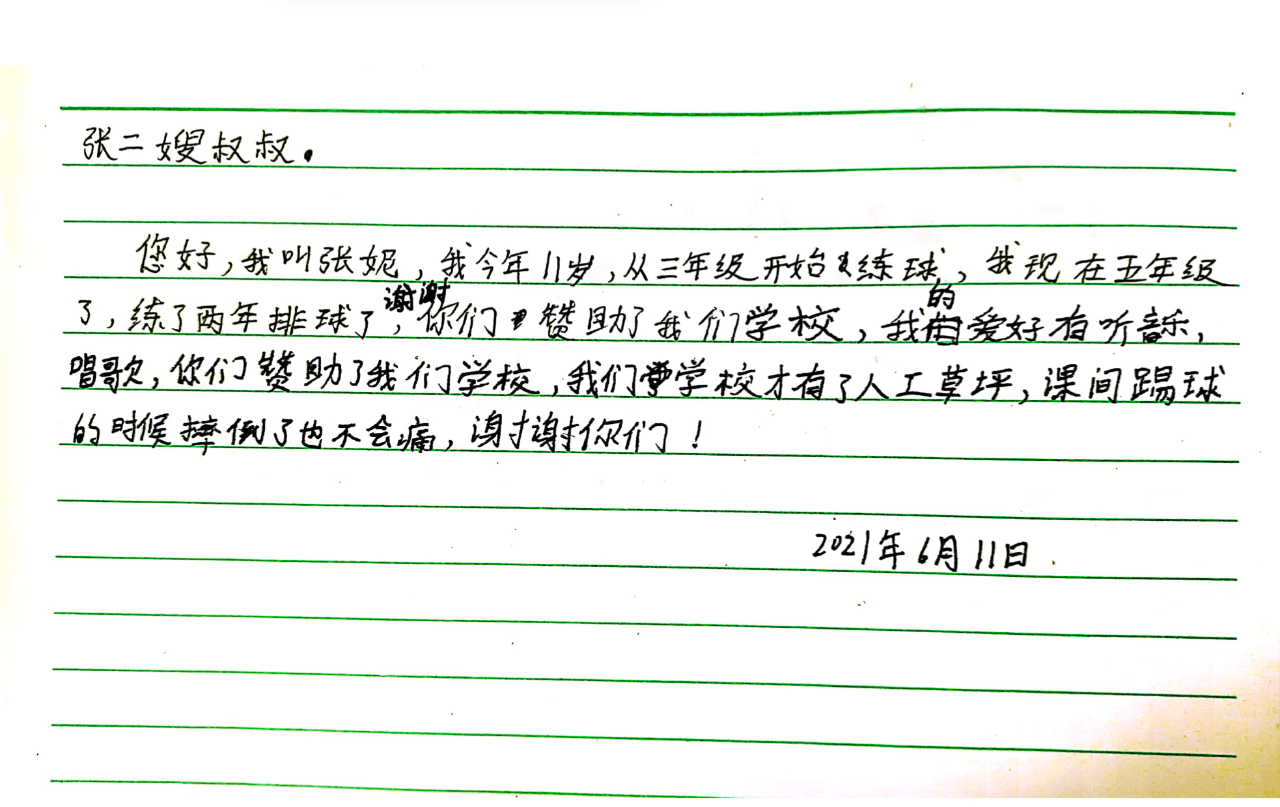 张二嫂叔叔.
您好,我叫张妮,我今年11岁,从三年级开始练球,我现在五年级
了,练了两年排球了,谢谢你们赞助了我们学校,我的爱好有听音乐,
唱歌,你们赞助了我们学校,我们学校才有了人工草坪,课间踢球
的时候摔倒了也不会痛,谢谢你们!
2021年6月11日.